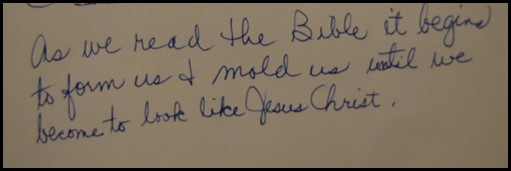 As we read the Bible it begins
to form us & mold us until we
become to look like Jesus Christ.